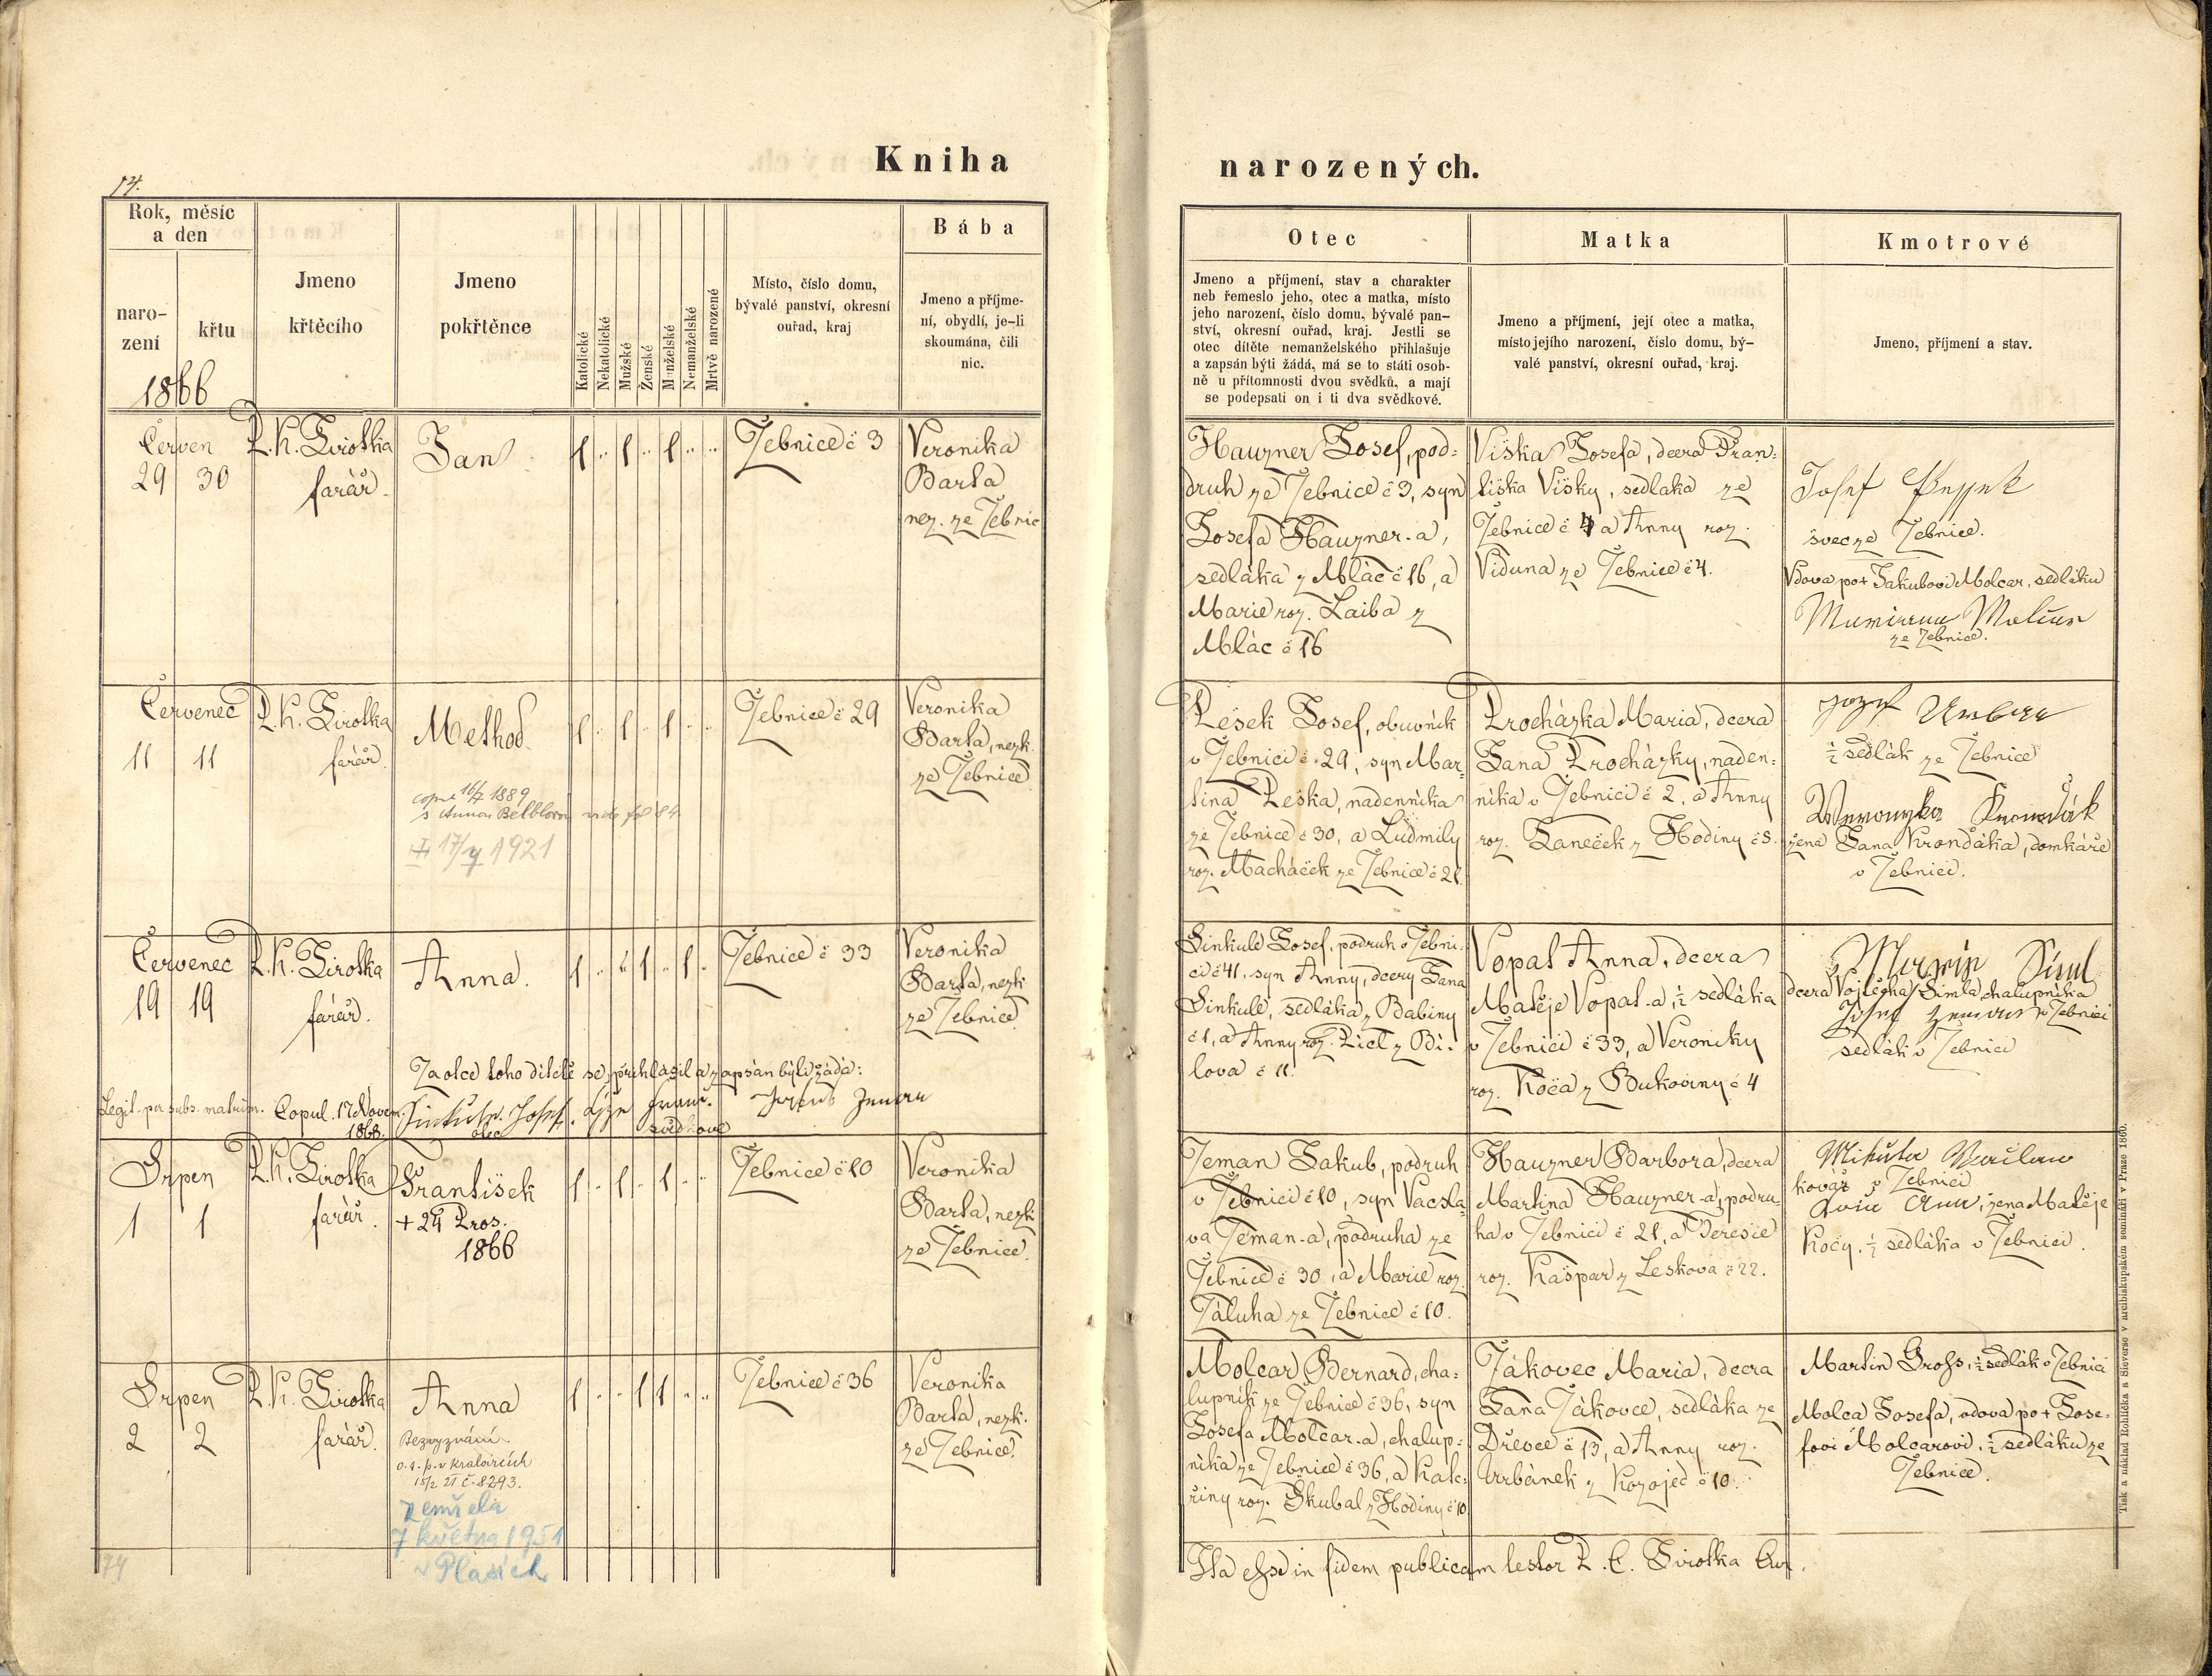 Kniha
narozených.
74.
Rok, měsíc
a den
naro-
zení
křtu
1866
Jmeno
křtěcího
Jmeno
pokřtěnce
Katolické
Nekatolické
Mužské
Ženské
Manželské
Nemanželské
Mrtvě narozené
Místo, číslo domu,
bývalé panství, okresní
ouřad, kraj
Bába
Jmeno a příjme-
ní, obydlí, je-li
skoumána, čili
nic.
Otec
Jmeno a příjmení, stav a charakter
neb řemeslo jeho, otec a matka, místo
jeho narození, číslo domu, bývalé pan-
ství, okresní ouřad, kraj. Jestli se
otec dítěte nemanželského přihlašuje
a zapsán býti žádá, má se to státi osob-
ně u přítomnosti dvou svědků, a mají
se podepsati on i ti dva svědkové.
Matka
Jmeno a příjmení, její otec a matka,
místo jejího narození, číslo domu, bý-
valé panství, okresní ouřad, kraj.
Kmotrové
Jmeno, příjmení a stav.
Červen
29 30
P. K. Sirotka
farář.
Jan
Žebnice č 3
Veronika
Barta
nez. ze Žebnic
Hauzner Josef, pod-
druh ze Žebnice č 3, syn
Josefa Hauzner-a,
sedláka z Mláč č 16, a
Marie roz. Laiba z
Mláč č 16
Viska Josefa, dcera Fran-
tiška Visky, sedláka ze
Žebnice č 4 a Anny roz.
Viduna ze Žebnice č 4.
Josef
švec ze Žebnice.
Vdova po + Jakubovi Molcar, sedláku
ze Žebnice.
Červenec
11 11
P. K. Sirotka
farář.
Method.
cop. 16/7 1889
s Annou vide fol 84
17/7 1921
Žebnice č 29
Veronika
Barta, nezk.
ze Žebnice
Pešek Josef, obuvník
v Žebnici č. 29, syn Mar-
tina Peška, nadenníka
ze Žebnice č 30, a Ludmily
roz. Macháček ze Žebnice č 21.
Procházka Maria, dcera
Jana Procházky, naden-
níka v Žebnici č 2, a Anny
roz. Janeček z Hodiny č 8.
Jozef Urban
½ sedlák ze Žebnice
Weronyka
žena Jana Krondáka, domkáře
v Žebnici.
Červenec
19 19
P. K. Sirotka
farář.
Anna.
Žebnice č 33
Veronika
Barta, nezk.
ze Žebnice.
Za otce toho dítěte se přihlásil a zapsán býti žádá:
Legit. per subs. matrim. Copul. 17 Novem.
1868.
Sinkule Josef.
otec
svědkové
Sinkule Josef, podruh v Žebni-
ci č 41, syn Anny, dcery Jana
Sinkule, sedláka z Babiny
č 1, a Anny roz. Picl z Bí-
lova č 11.
Vopat Anna, dcera
Matěje Vopat-a, ½ sedláka
v Žebnici č 33, a Veroniky
roz. Koča z Bukoviny č 4
dcera Vojtěcha Šimla chalupníka
Josef Zeman v Žebnici
sedlák v Žebnici
Srpen
1 1
P. K. Sirotka
farář.
František
+ 24 Pros.
1866
Žebnice č 10
Veronika
Barta, nezk
ze Žebnice.
Zeman Jakub, podruh
v Žebnici č 10, syn Vácsla-
va Zeman-a, podruha ze
Žebnice č 30, a Marie roz.
Záluha ze Žebnice č 10.
Hauzner Barbora, dcera
Martina Hauzner-a, podru-
ha v Žebnici č 21, a Teresie
roz. Kašpar z Leskova č 22.
kovář z Žebnici
žena Matěje
Koči, ½ sedláka v Žebnici.
Srpen
2 2
P. K. Sirotka
farář.
Anna
Bez vyznání
o. s. p. v Kralovicích
15/2 21 č. 8293.
zemřela
7 května 1951
v Plasích
Žebnice č 36
Veronika
Barta, nezk.
ze Žebnice.
Molcar Bernard, cha-
lupník ze Žebnice č 36, syn
Josefa Molcar-a, chalup-
níka ze Žebnice č 36, a Kate-
řiny roz. Skubal z Hodiny č 10
Žákovec Maria, dcera
Jana Žákovce, sedláka ze
Dřevce č 13, a Anny roz.
Urbánek z Kozojed č 10.
Martin Groß, ½ sedlák v Žebnici
Molca Josefa, vdova po + Jose-
fovi Molcarovi, ½ sedláku ze
Žebnice.
74
Ita esse in fidem publicam testor P. C. Sirotka Cur.
Tisk a náklad Rohlíčka a Sieverse v arcibiskupském semináři v Praze 1860.